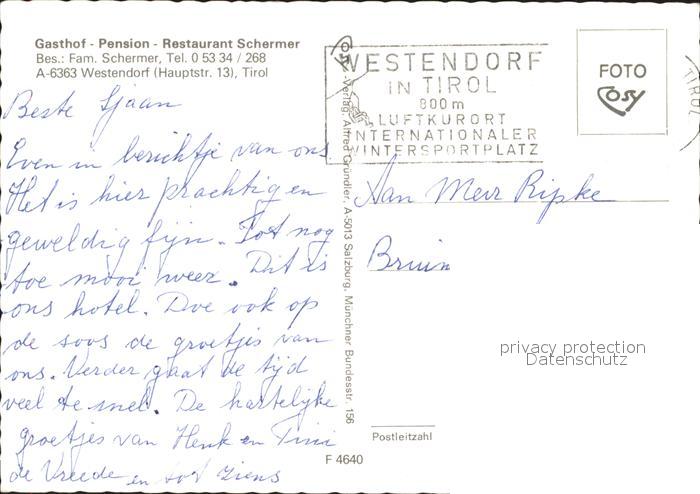 Gasthof - Pension - Restaurant Schermer
Bes.: Fam. Schermer, Tel. 0 53 34 / 268
A-6363 Westendorf (Hauptstr. 13), Tirol
Beste Sjaan
Even in berichtje van ons
Het is hier prachtig en
geweldig fijn. Tot nog
toe mooi weer. Dit is
ons hotel. Doe ook op
de soos de groetjes van
ons. Verder gaat de tijd
veel te snel. De hartelijke
groetjes van Henk en Tini
de Vreede en tot ziens
Cosy-Verlag Alfred Gründler, A-5013 Salzburg, Münchner Bundesstr. 156
WESTENDORF
IN TIROL
800 m
LUFTKURORT
INTERNATIONALER
WINTERSPORTPLATZ
FOTO
Cosy
TIROL
Aan Mevr Ripke
Bruin
privacy protection
Datenschutz
Postleitzahl
F 4640